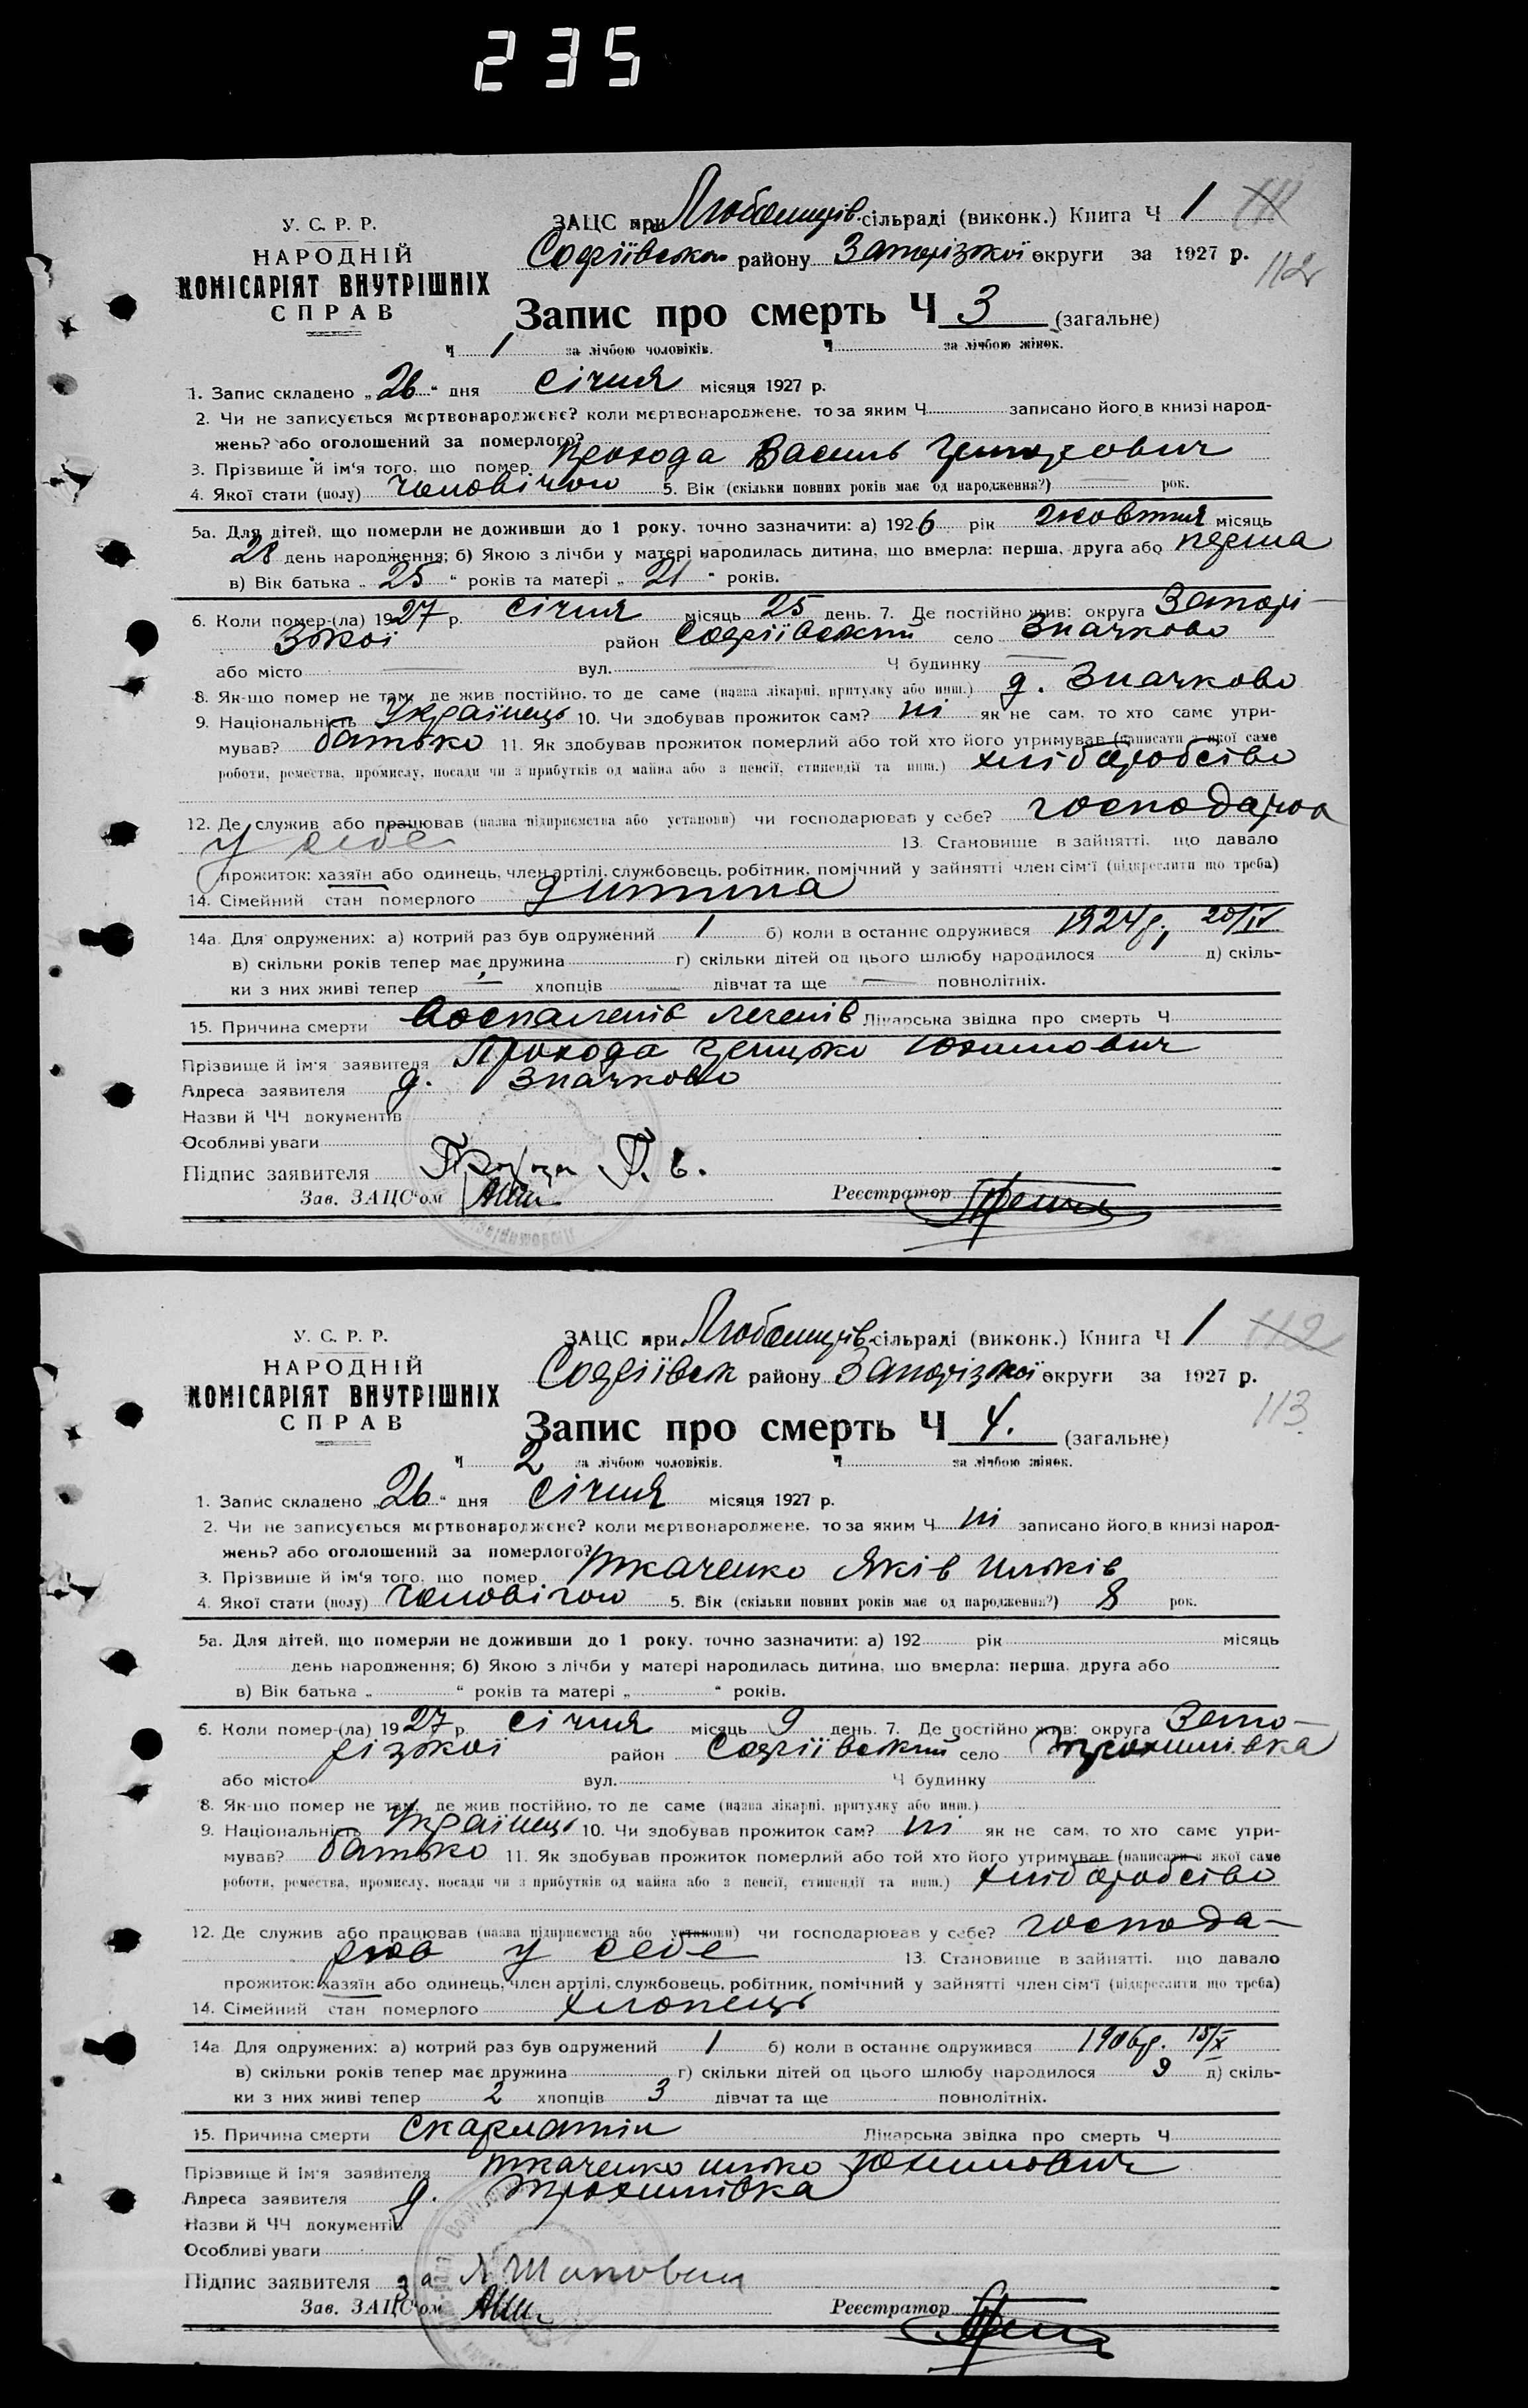 235
У. С. Р. Р.
НАРОДНІЙ
КОМІСАРІЯТ ВНУТРІШНІХ
СПРАВ
ЗАЦС при Любомирів. сільраді (виконк.) Книга Ч 1
Софіївського району Запорізької округи за 1927 р.
112
Запис про смерть Ч 3 (загальне)
Ч 1 за лічбою чоловіків. Ч за лічбою жінок.
1. Запис складено „26" дня січня місяця 1927 р.
2. Чи не записується мертвонароджене? коли мертвонароджене, то за яким Ч записано його в книзі народ-
жень? або оголошений за померлого?
3. Прізвище й ім'я того, що помер Прохода Василь
4. Якої стати (полу) чоловічою 5. Вік (скільки повних років має од народження?) — рок.
5а. Для дітей, що померли не доживши до 1 року, точно зазначити: а) 1926 рік жовтня місяць
28 день народження; б) Якою з лічби у матері народилась дитина, що вмерла: перша, друга або перша
в) Вік батька „25" років та матері „21" років.
6. Коли помер-(ла) 1927 р. січня місяць 25 день. 7. Де постійно жив: округа Запорі-
зької район Софіївський село Значково
або місто — вул. — Ч будинку —
8. Як-що помер не там, де жив постійно, то де саме (назва лікарні, притулку або инш.) д. Значково
9. Національність Українець 10. Чи здобував прожиток сам? ні як не сам, то хто саме утри-
мував? батько 11. Як здобував прожиток померлий або той хто його утримував (написати з якої саме
роботи, ремества, промислу, посади чи з прибутків од майна або з пенсії, стипендії та инш.) хліборобство
12. Де служив або працював (назва підприємства або установи) чи господарював у себе? господарюв
у себе 13. Становище в зайнятті, що давало
прожиток: хазяїн або одинець, член артілі, службовець, робітник, помічний у зайнятті член сім'ї (підкреслити що треба)
14. Сімейний стан померлого дитина
14а. Для одружених: а) котрий раз був одружений 1 б) коли в останнє одружився 1924 р.
в) скільки років тепер має дружина г) скільки дітей од цього шлюбу народилося д) скіль-
ки з них живі тепер — хлопців — дівчат та ще — повнолітніх.
15. Причина смерти Воспаленів легенів Лікарська звідка про смерть Ч
Прізвище й ім'я заявителя Прохода Юхимович
Адреса заявителя д. Значково
Назви й ЧЧ документів
Особливі уваги
Підпис заявителя
Зав. ЗАЦС'ом Реєстратор
У. С. Р. Р.
НАРОДНІЙ
КОМІСАРІЯТ ВНУТРІШНІХ
СПРАВ
ЗАЦС при Любомирів. сільраді (виконк.) Книга Ч 1 112
Софіївськ району Запорізької округи за 1927 р.
113
Запис про смерть Ч 4. (загальне)
Ч 2 за лічбою чоловіків. Ч за лічбою жінок.
1. Запис складено „26" дня січня місяця 1927 р.
2. Чи не записується мертвонароджене? коли мертвонароджене, то за яким Ч ні записано його в книзі народ-
жень? або оголошений за померлого?
3. Прізвище й ім'я того, що помер Ткаченко Яків Ильків
4. Якої стати (полу) чоловічою 5. Вік (скільки повних років має од народження?) 8 рок.
5а. Для дітей, що померли не доживши до 1 року, точно зазначити: а) 192 рік місяць
день народження; б) Якою з лічби у матері народилась дитина, що вмерла: перша, друга або
в) Вік батька „ " років та матері „ " років.
6. Коли помер-(ла) 1927 р. січня місяць 9 день. 7. Де постійно жив: округа Запо-
різької район Софіївський село Трохимівка
або місто вул. Ч будинку
8. Як-що помер не там, де жив постійно, то де саме (назва лікарні, притулку або инш.)
9. Національність Українець 10. Чи здобував прожиток сам? ні як не сам, то хто саме утри-
мував? батько 11. Як здобував прожиток померлий або той хто його утримував (написати з якої саме
роботи, ремества, промислу, посади чи з прибутків од майна або з пенсії, стипендії та инш.) хліборобство
12. Де служив або працював (назва підприємства або установи) чи господарював у себе? господа-
рюв у себе 13. Становище в зайнятті, що давало
прожиток: хазяїн або одинець, член артілі, службовець, робітник, помічний у зайнятті член сім'ї (підкреслити що треба)
14. Сімейний стан померлого хлопець
14а. Для одружених: а) котрий раз був одружений 1 б) коли в останнє одружився 1906 р. 15/X
в) скільки років тепер має дружина г) скільки дітей од цього шлюбу народилося 9 д) скіль-
ки з них живі тепер 2 хлопців 3 дівчат та ще повнолітніх.
15. Причина смерти Скарлатін Лікарська звідка про смерть Ч
Прізвище й ім'я заявителя Ткаченко Илько Юхимович
Адреса заявителя д. Трохимівка
Назви й ЧЧ документів
Особливі уваги
Підпис заявителя за
Зав. ЗАЦС'ом Реєстратор